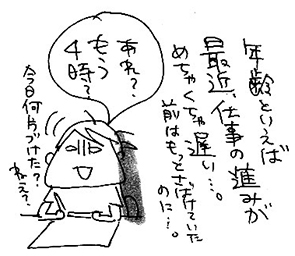 年齢といえば
最近、仕事の進みが
めちゃくちゃ遅い…。
前はもっとさばけていた
のに…。
あれ?
もう
4時?
今日何片づけた?
ねえ?